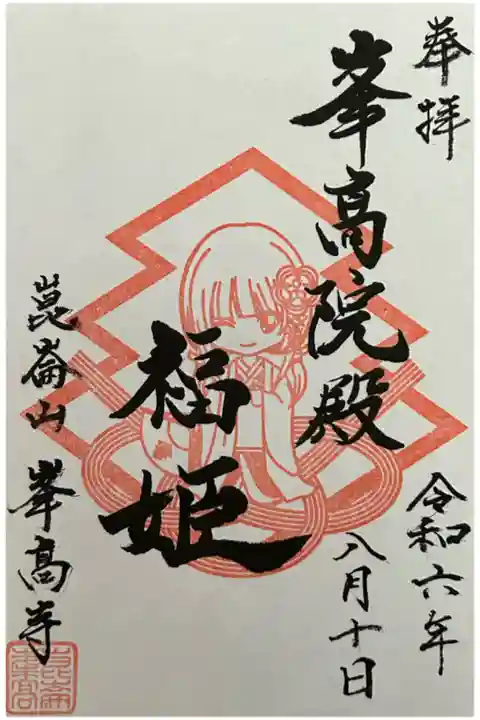 奉拝
令和六年
八月十日
峯高院殿
福姫
崑崙山
峯高寺